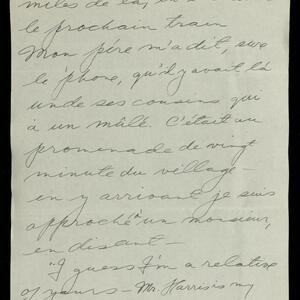 miles de là, en
le prochain train
Mon père m'a dit, sur
le 'phone, qu'il y avait là
un de ses cousins qui
à un mûlé. C'était au
promenade de vingt
minute du village –
en y arrivant je suis
approché a un monsieur,
en disant –
"I guess I'm a relative
of yours – Mr. Harris is my